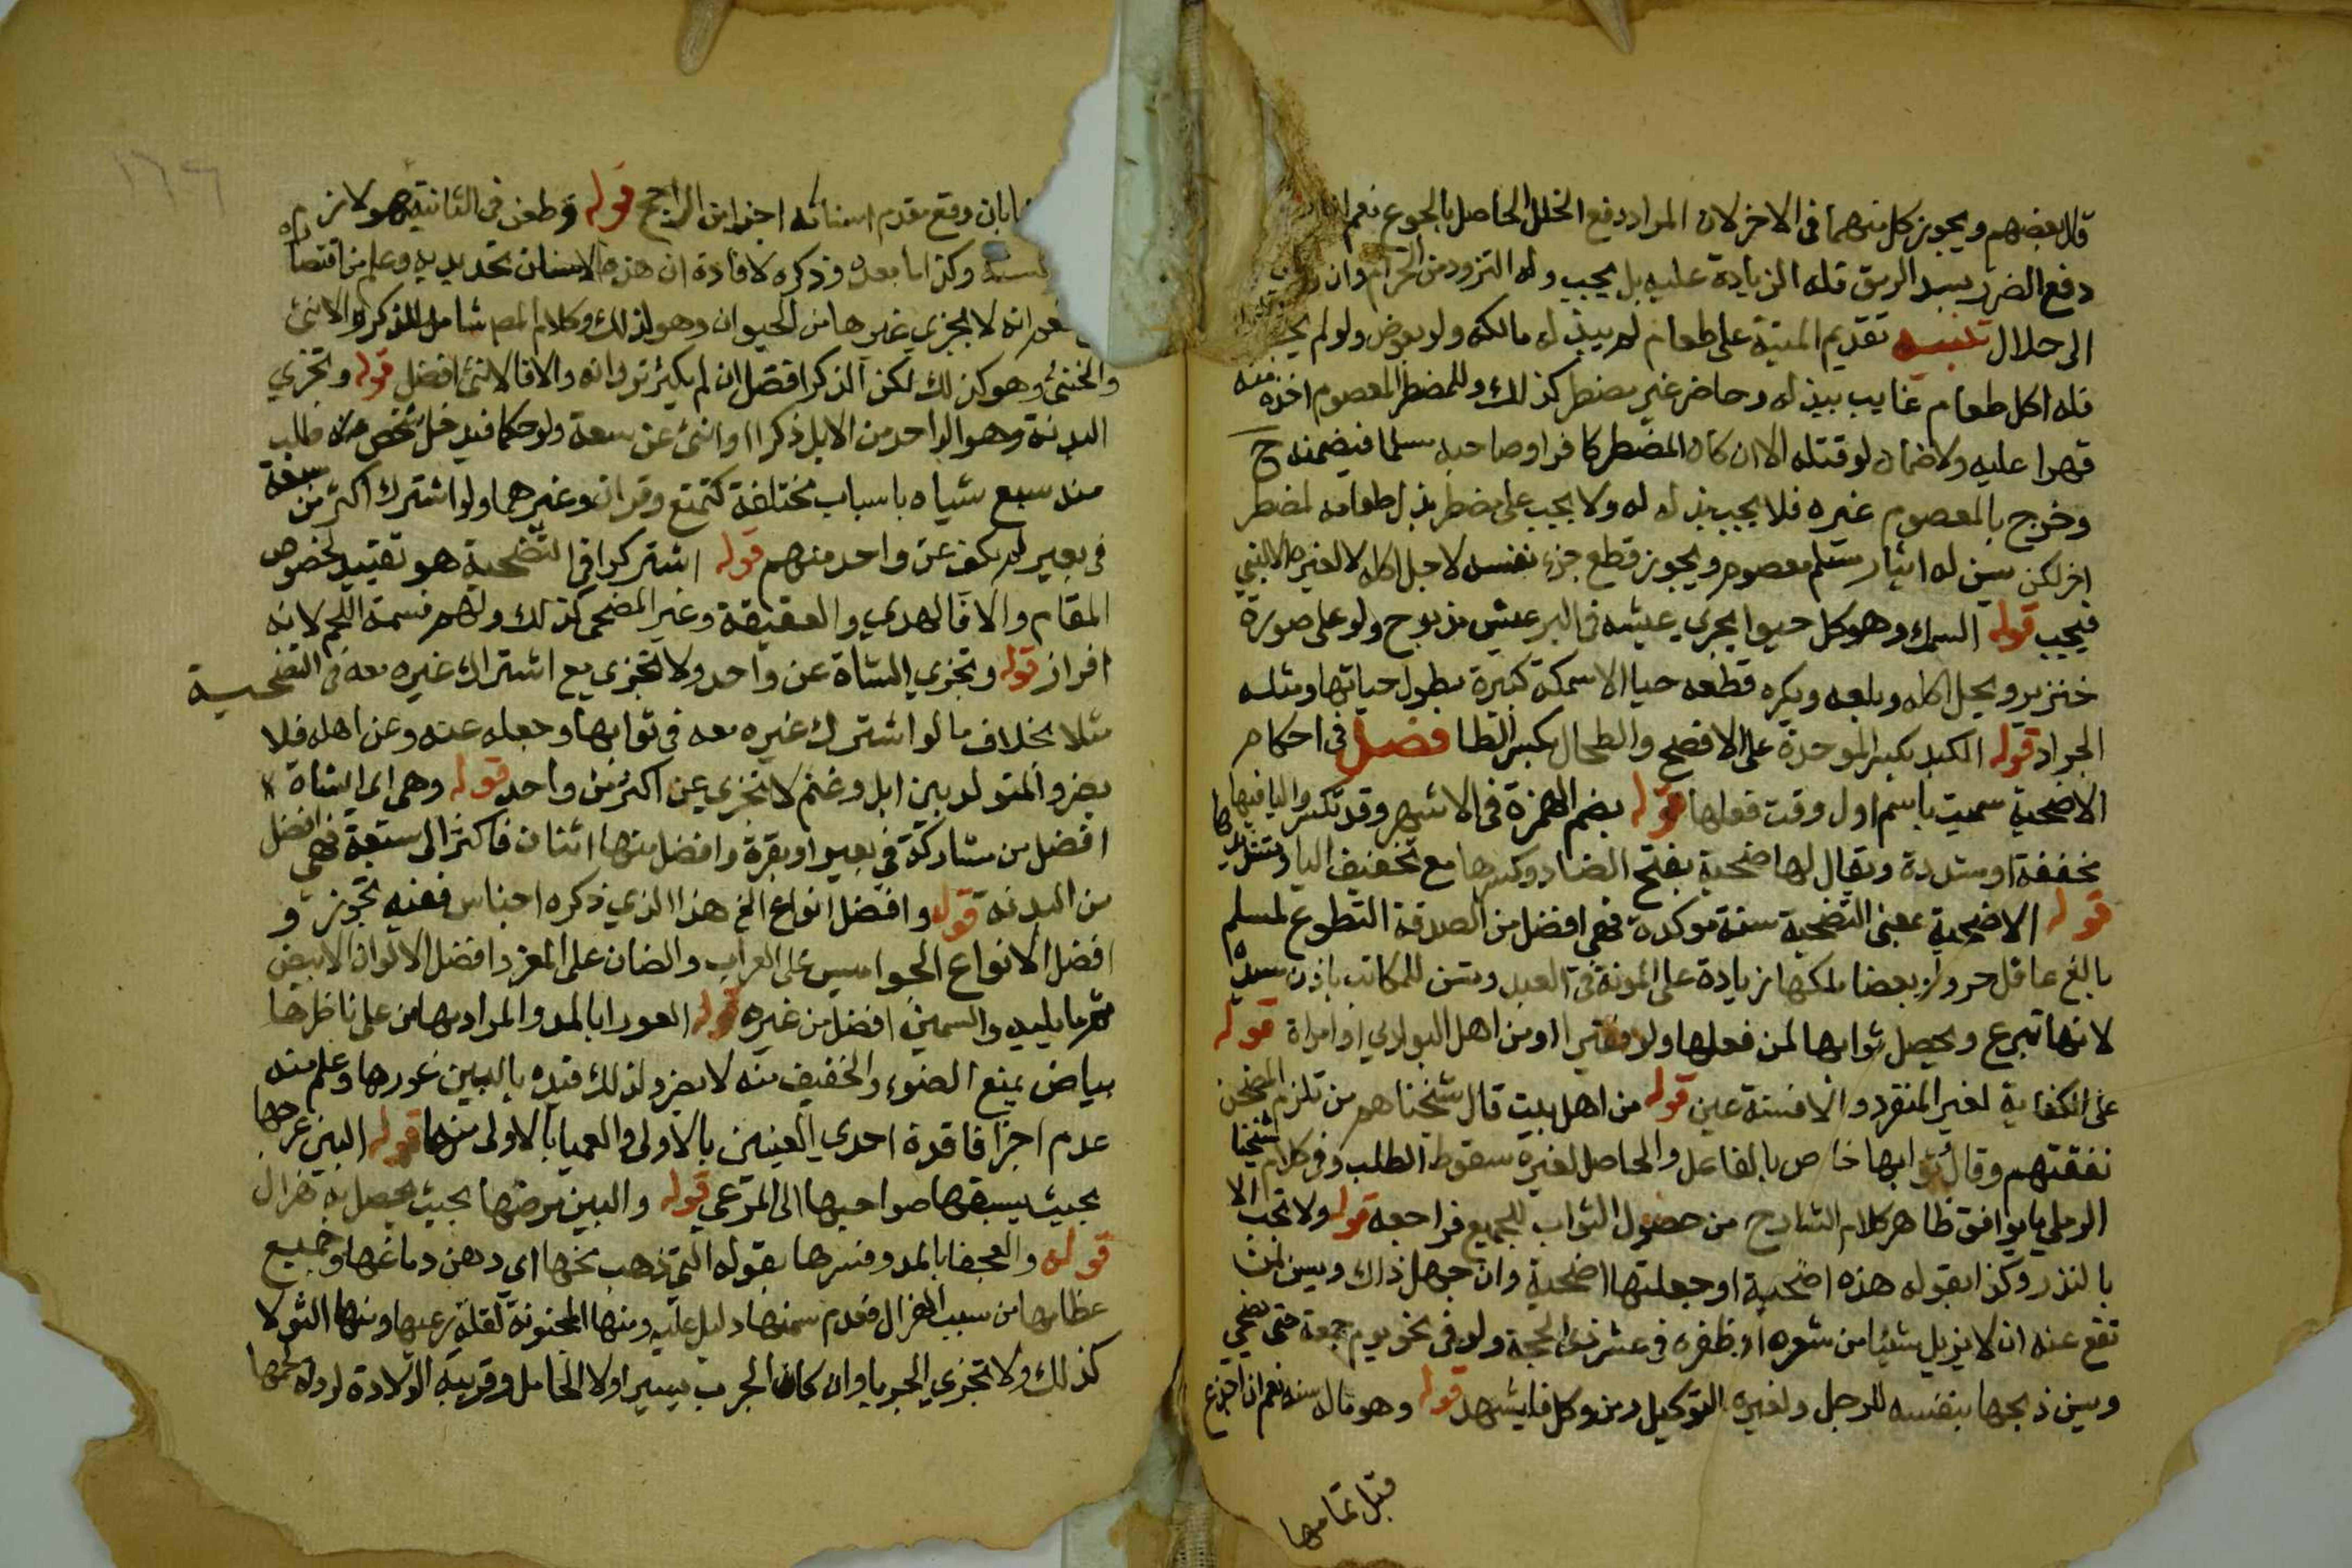 قال بعضهم ويجوز كل منهما في الاخر لان المراد دفع الخلل الحاصل بالجوع نعم
دفع الضرر بسد الرمق فله الزيادة عليه بل يجب وله التزود من الحرام وان
الى حلال تنبيه تقديم الميتة على طعام لم يبذله مالكه ولو بعوض ولو لم
فله اكل طعام غايب ببذله وحاضر غير مضطر كذلك وللمضطر المعصوم اخذه منه
قهرا عليه ولا ضمان لو قتله الا ان كان المضطر كافرا وصاحبه مسلما فيضمنه ح
وخرج بالمعصوم غيره فلا يجب بذله له ولا يجب على مضطر بذل طعامه لمضطر
اخر لكن يسن له ايثار مسلم معصوم ويجوز قطع جزء نفسه لاجل اكله لا لغيره الا لنبي
فيجب قوله السمك وهو كل حيوا بحري عيشه في البر عيش مذبوح ولو على صورة
خنزير ويحل اكله وبلعه ويكره قطعه حيا الا سمكة كبيرة يطول حياتها ومثله
الجراد قوله الكبد بكسر الموحدة على الافصح والطحال بكسر الطا فصل في احكام
الاضحية سميت باسم اول وقت فعلها قوله بضم الهمزة في الاشهر وقد تكسر واليا فيها
مخففة او مشددة ويقال لها ضحية بفتح الضاد وكسرها مع تخفيف اليا وتشديدها
قوله الاضحية بمعنى التضحية سنة موكدة فهي افضل من الصدقة التطوع لمسلم
بالغ عاقل حر ولو بعضا ملكها زيادة على المونة في العيد وتسن للمكاتب باذن سيده
لانها تبرع ويحصل ثوابها لمن فعلها ولو فقيرا او من اهل البوادي او امراة قوله
على الكفاية لغير المنفرد والا فسنة عين قوله من اهل بيت قال شيخنا هم من تلزم المضحي
نفقتهم وقال ثوابها خاص بالفاعل والحاصل لغيره سقوط الطلب وفي كلام شيخنا
الرملي ما يوافق ظاهر كلام الشارح من حصول الثواب للجميع فراجعه قوله ولا تجب الا
بالنذر وكذا بقوله هذه اضحية او جعلتها اضحية وان جهل ذلك ويسن لمن
تقع عنه ان لا يزيل شيئا من شعره او ظفره في عشر ذي الحجة ولو في نحو يوم جمعة حتى يضحي
ويسن ذبحها بنفسه للرجل ولغيره التوكيل ومن وكل فليشهد قوله وهو ماله سنه نعم ان اجذع
قبل تمامها
١٦٦
بان وقع مقدم اسنانه اجزا من الراجح قوله وطعن في الثانية هو لازم
وكذا ما بعده وذكره لافادة ان هذه الاسنان تحديدية وعلم من اقتصاره
انه لا يجزي غيرها من الحيوان وهو لذلك وكلام المص شامل للذكر والانثى
والخنثى وهو كذلك لكن الذكر افضل ان لم يكثر نزوانه والا فالانثى افضل قوله وتجزي
البدنة وهو الواحد من الابل ذكرا او انثى عن سبعة ولو حكما فيدخل شخص طلب
منه سبع شياه باسباب مختلفة كتمتع وقران وغيرهما ولو اشترك اكثر من سبعة
في بعير لم يكف عن واحد منهم قوله اشتركوا في التضحية هو تقييد لخصوص
المقام والا فالهدي والعقيقة وغير المضحي كذلك ولهم قسمة اللحم لانه
افراز قوله وتجزي الشاة عن واحد ولا تجزي مع اشتراك غيره معه في التضحية
مثلا بخلاف ما لو اشترك غيره معه في ثوابها وجعله عنه وعن اهله فلا
يضر والمتولد بين ابل وغنم لا تجزي عن اكثر من واحد قوله وهي اي الشاة
افضل من مشاركة في بعير او بقرة وافضل منها اثنان فاكثر الى سبعة فهي افضل
من البدنة قوله وافضل انواع الخ هذا الذي ذكره اجناس ففيه تجوز و
افضل الانواع الجواميس على العراب والضان على المعز وافضل الالوان الابيض
ثم ما يليه والسمين افضل من غيره قوله العورا بالمد والمراد بها من على ناظرها
بياض يمنع الضوء والخفيف منه لا يضر ولذلك قيده بالبين عورها وعلم منه
عدم اجزا فاقدة احدى العينين بالاولى والعميا بالاولى منها قوله البين عرجها
بحيث يسبقها صواحبها الى المرعى قوله والبين مرضها بحيث يحصل به هزال
قوله والعجفا بالمد وفسرها بقوله التي ذهب مخها اي دهن دماغها وجميع
عظامها من سبب الهزال فعدم سمنها دليل عليه ومنها المجنونة لقلة رعيها ومنها الثولا
كذلك ولا تجزي الجربا وان كان الجرب يسيرا ولا الحامل وقريبة الولادة لرداة لحمها